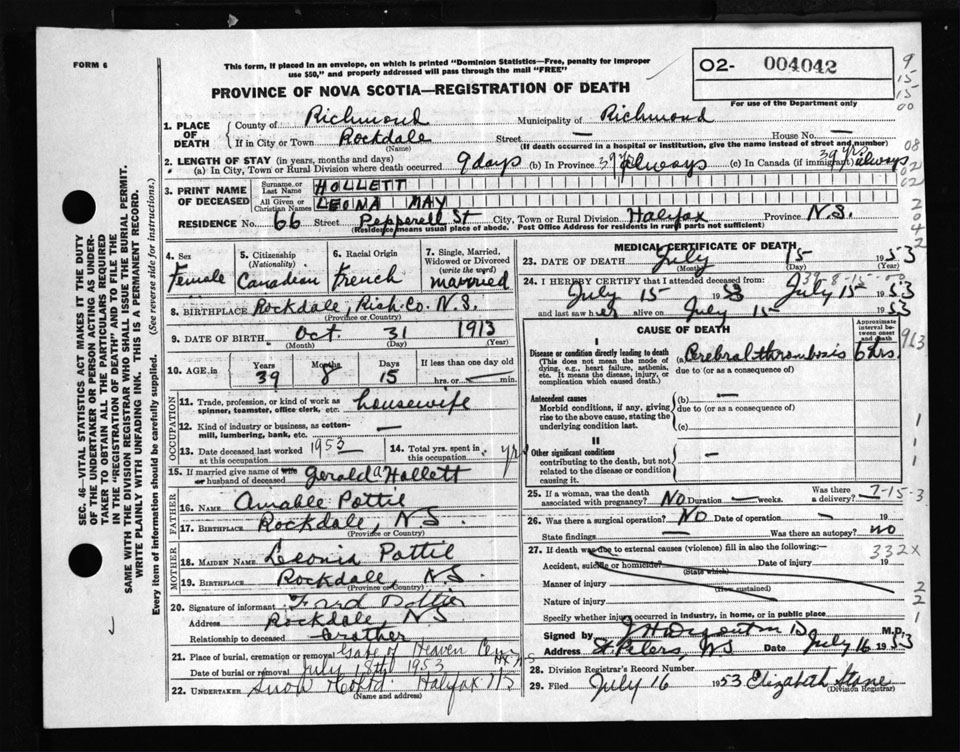 FORM 6
This form, if placed in an envelope, on which is printed "Dominion Statistics—Free, penalty for improper
use $50," and properly addressed will pass through the mail "FREE"
O2- 004042
For use of the Department only
PROVINCE OF NOVA SCOTIA—REGISTRATION OF DEATH
1. PLACE OF DEATH
County of Richmond Municipality of Richmond
If in City or Town Rockdale Street — House No. —
(Name) (If death occurred in a hospital or institution, give street and number)
2. LENGTH OF STAY (in years, months and days)
(a) In City, Town or Rural Division where death occurred 9 days (b) In Province 39 yrs always (c) In Canada (if immigrant) 39 yrs always
3. PRINT NAME OF DECEASED
Surname or Last Name HOLLETT
All Given or Christian Names LEONA MAY
RESIDENCE No. 66 Street Pepperell St City, Town or Rural Division Halifax Province N.S.
(Residence means usual place of abode. Post Office Address for residents in rural parts not sufficient)
4. Sex Female
5. Citizenship (Nationality) Canadian
6. Racial Origin French
7. Single, Married, Widowed or Divorced (write the word) married
8. BIRTHPLACE Rockdale, Rich. Co. N.S.
(Province or Country)
9. DATE OF BIRTH Oct. 31 1913
(Month) (Day) (Year)
10. AGE in Years 39 Months 8 Days 15 If less than one day hrs. or min.
OCCUPATION
11. Trade, profession, or kind of work as spinner, teamster, office clerk, etc. housewife
12. Kind of industry or business, as cotton-mill, lumbering, bank, etc. —
13. Date deceased last worked at this occupation 1953
14. Total yrs. spent in this occupation yrs
15. If married give name of wife or husband of deceased Gerald A Hollett
FATHER
16. NAME Amable Pottie
17. BIRTHPLACE Rockdale, N.S.
(Province or Country)
MOTHER
18. MAIDEN NAME Leonia Pottie
19. BIRTHPLACE Rockdale, N.S.
(Province or Country)
20. Signature of informant Fred Pottie
Address Rockdale, N S
Relationship to deceased brother
21. Place of burial, cremation or removal Gate of Heaven Cem
Date of burial or removal July 18th 1953
22. UNDERTAKER Snow & Co Ltd. Halifax NS
(Name and address)
MEDICAL CERTIFICATE OF DEATH
23. DATE OF DEATH July 15 1953
(Month) (Day) (Year)
24. I HEREBY CERTIFY that I attended deceased from:
July 15 1953 July 15 1953
and last saw her alive on July 15 1953
CAUSE OF DEATH
Approximate interval between onset and death
I
Disease or condition directly leading to death
(This does not mean the mode of dying, e.g., heart failure, asthenia, etc. It means the disease, injury, or complication which caused death.
(a) Cerebral thrombosis 6 hrs.
due to (or as a consequence of)
Antecedent causes
Morbid conditions, if any, giving rise to the above cause, stating the underlying condition last.
(b) —
due to (or as a consequence of)
(c)
II
Other significant conditions
contributing to the death, but not related to the disease or condition causing it. —
25. If a woman, was the death associated with pregnancy? NO Duration — weeks. Was there a delivery?
7-15-3
26. Was there a surgical operation? NO Date of operation — 19
State findings — Was there an autopsy? no
27. If death was due to external causes (violence) fill in also the following:—
332X
Accident, suicide or homicide? Date of injury 19
(State which)
Manner of injury
(How sustained)
Nature of injury
Specify whether injury occurred in industry, in home, or in public place
Signed by M.D.
Address St. Peters, NS Date July 16 1953
28. Division Registrar's Record Number
29. Filed July 16 1953 Elizabeth Stone
(Division Registrar)
SEC. 46—VITAL STATISTICS ACT MAKES IT THE DUTY
OF THE UNDERTAKER OR PERSON ACTING AS UNDER-
TAKER TO OBTAIN ALL THE PARTICULARS REQUIRED
IN THE "REGISTRATION OF DEATH" AND TO FILE THE
SAME WITH THE DIVISION REGISTRAR WHO SHALL ISSUE THE BURIAL PERMIT.
WRITE PLAINLY WITH UNFADING INK. THIS IS A PERMANENT RECORD.
Every item of information should be carefully supplied. (See reverse side for instructions.)